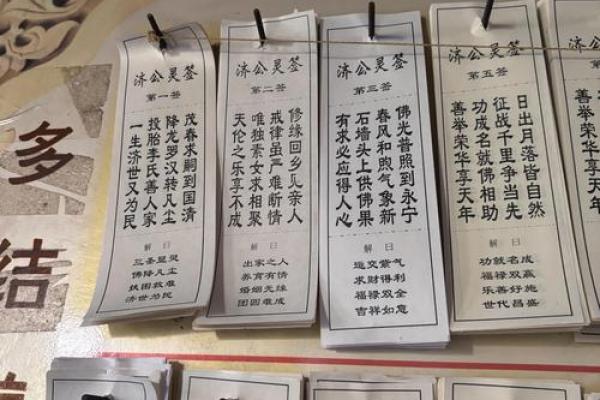 多
结
济公灵签
第一签
茂春求嗣到国清
降龙罗汉转凡尘
投胎李氏善人家
一生济世又为民
解曰
三圣显灵
佛降凡尘
扶困救难
济世为民
济公灵签
第二签
修缘回乡见亲人
戒律虽严难断情
唯独素女求相聚
天伦之乐享不成
解曰
出家之人
养育有情
婚姻无缘
团圆难成
济公灵签
第三签
佛光普照到永宁
春风和煦气象新
石墙头上供佛果
有求必应得人心
解曰
运交紫气
求财得利
福禄双全
吉祥如意
济公灵签
第五签
日出月落皆自然
征战千里争当先
功成名就佛相助
善举荣华享天年
解曰
功就名成
福禄双赢
乐善好施
世代昌盛
济公
善举荣华享天年